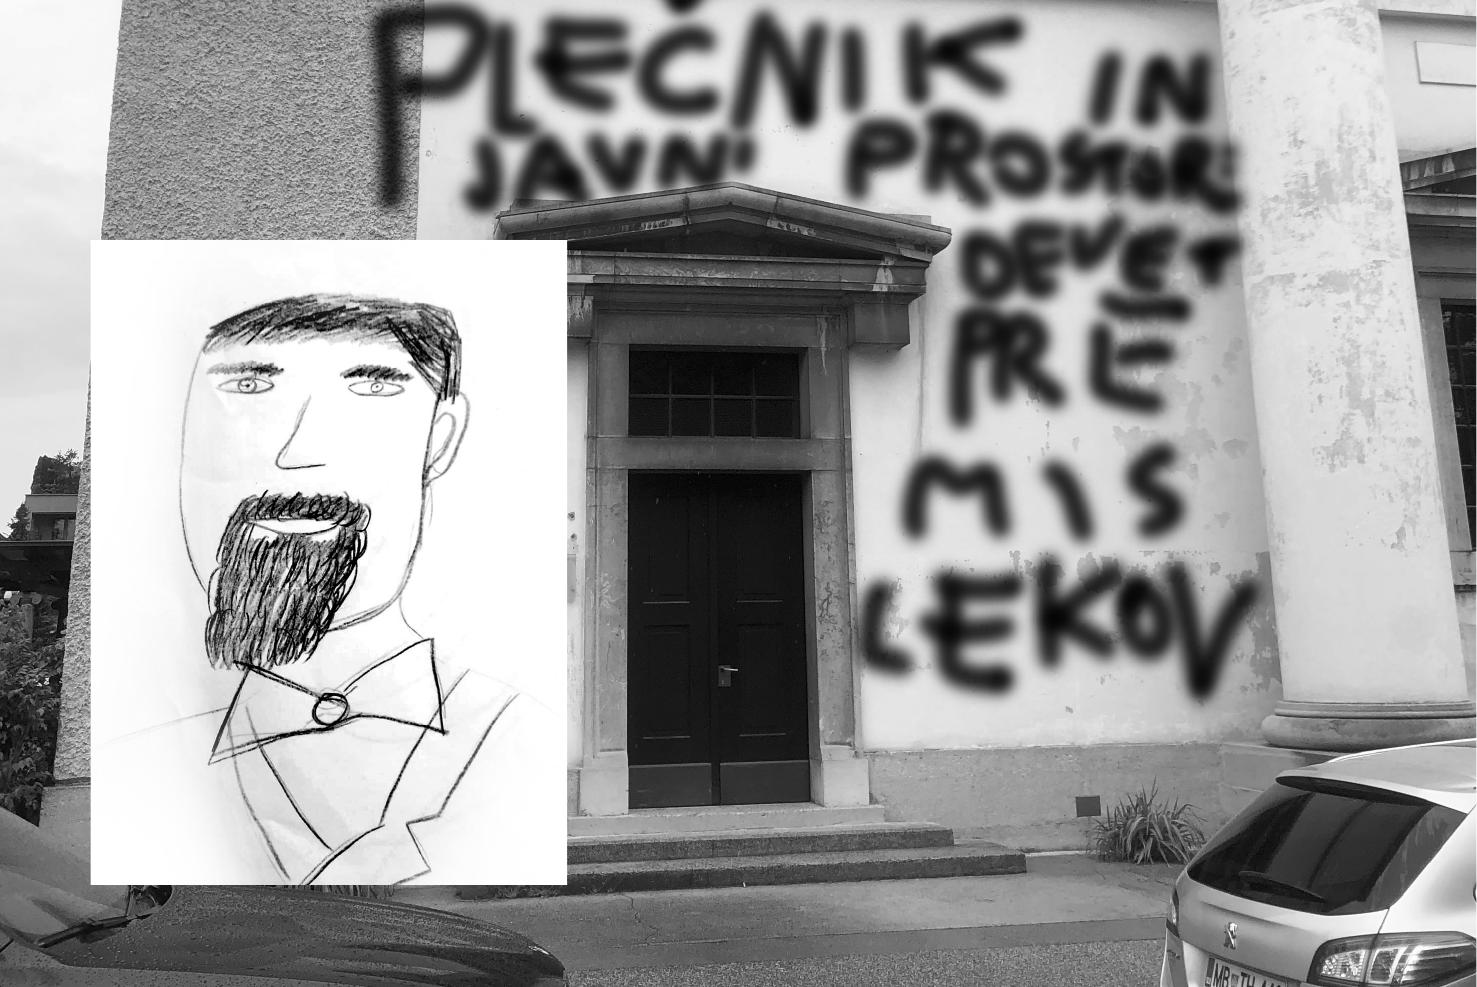 PLEČNIK IN
JAVNI PROSTOR:
DEVET
PRE
MIS
LEKOV
MB TH